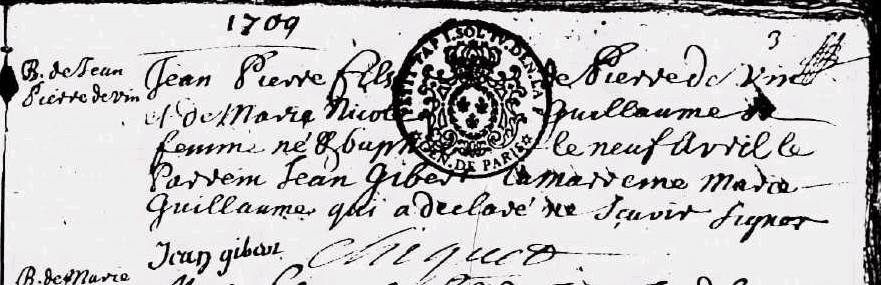 1709
3
B. de Jean
Pierre de vin
Jean Pierre fils de Pierre de vin
et de Marie Nicole Guillaume sa
femme né & bapt le neuf Avril le
Parrein Jean Gibert la marreine Marie
Guillaume qui a declaré ne sçavoir signer
PETIT PAP 1. SOL. IV. DEN. LA F
GEN. DE PARIS
Jean gibert
B. de Marie